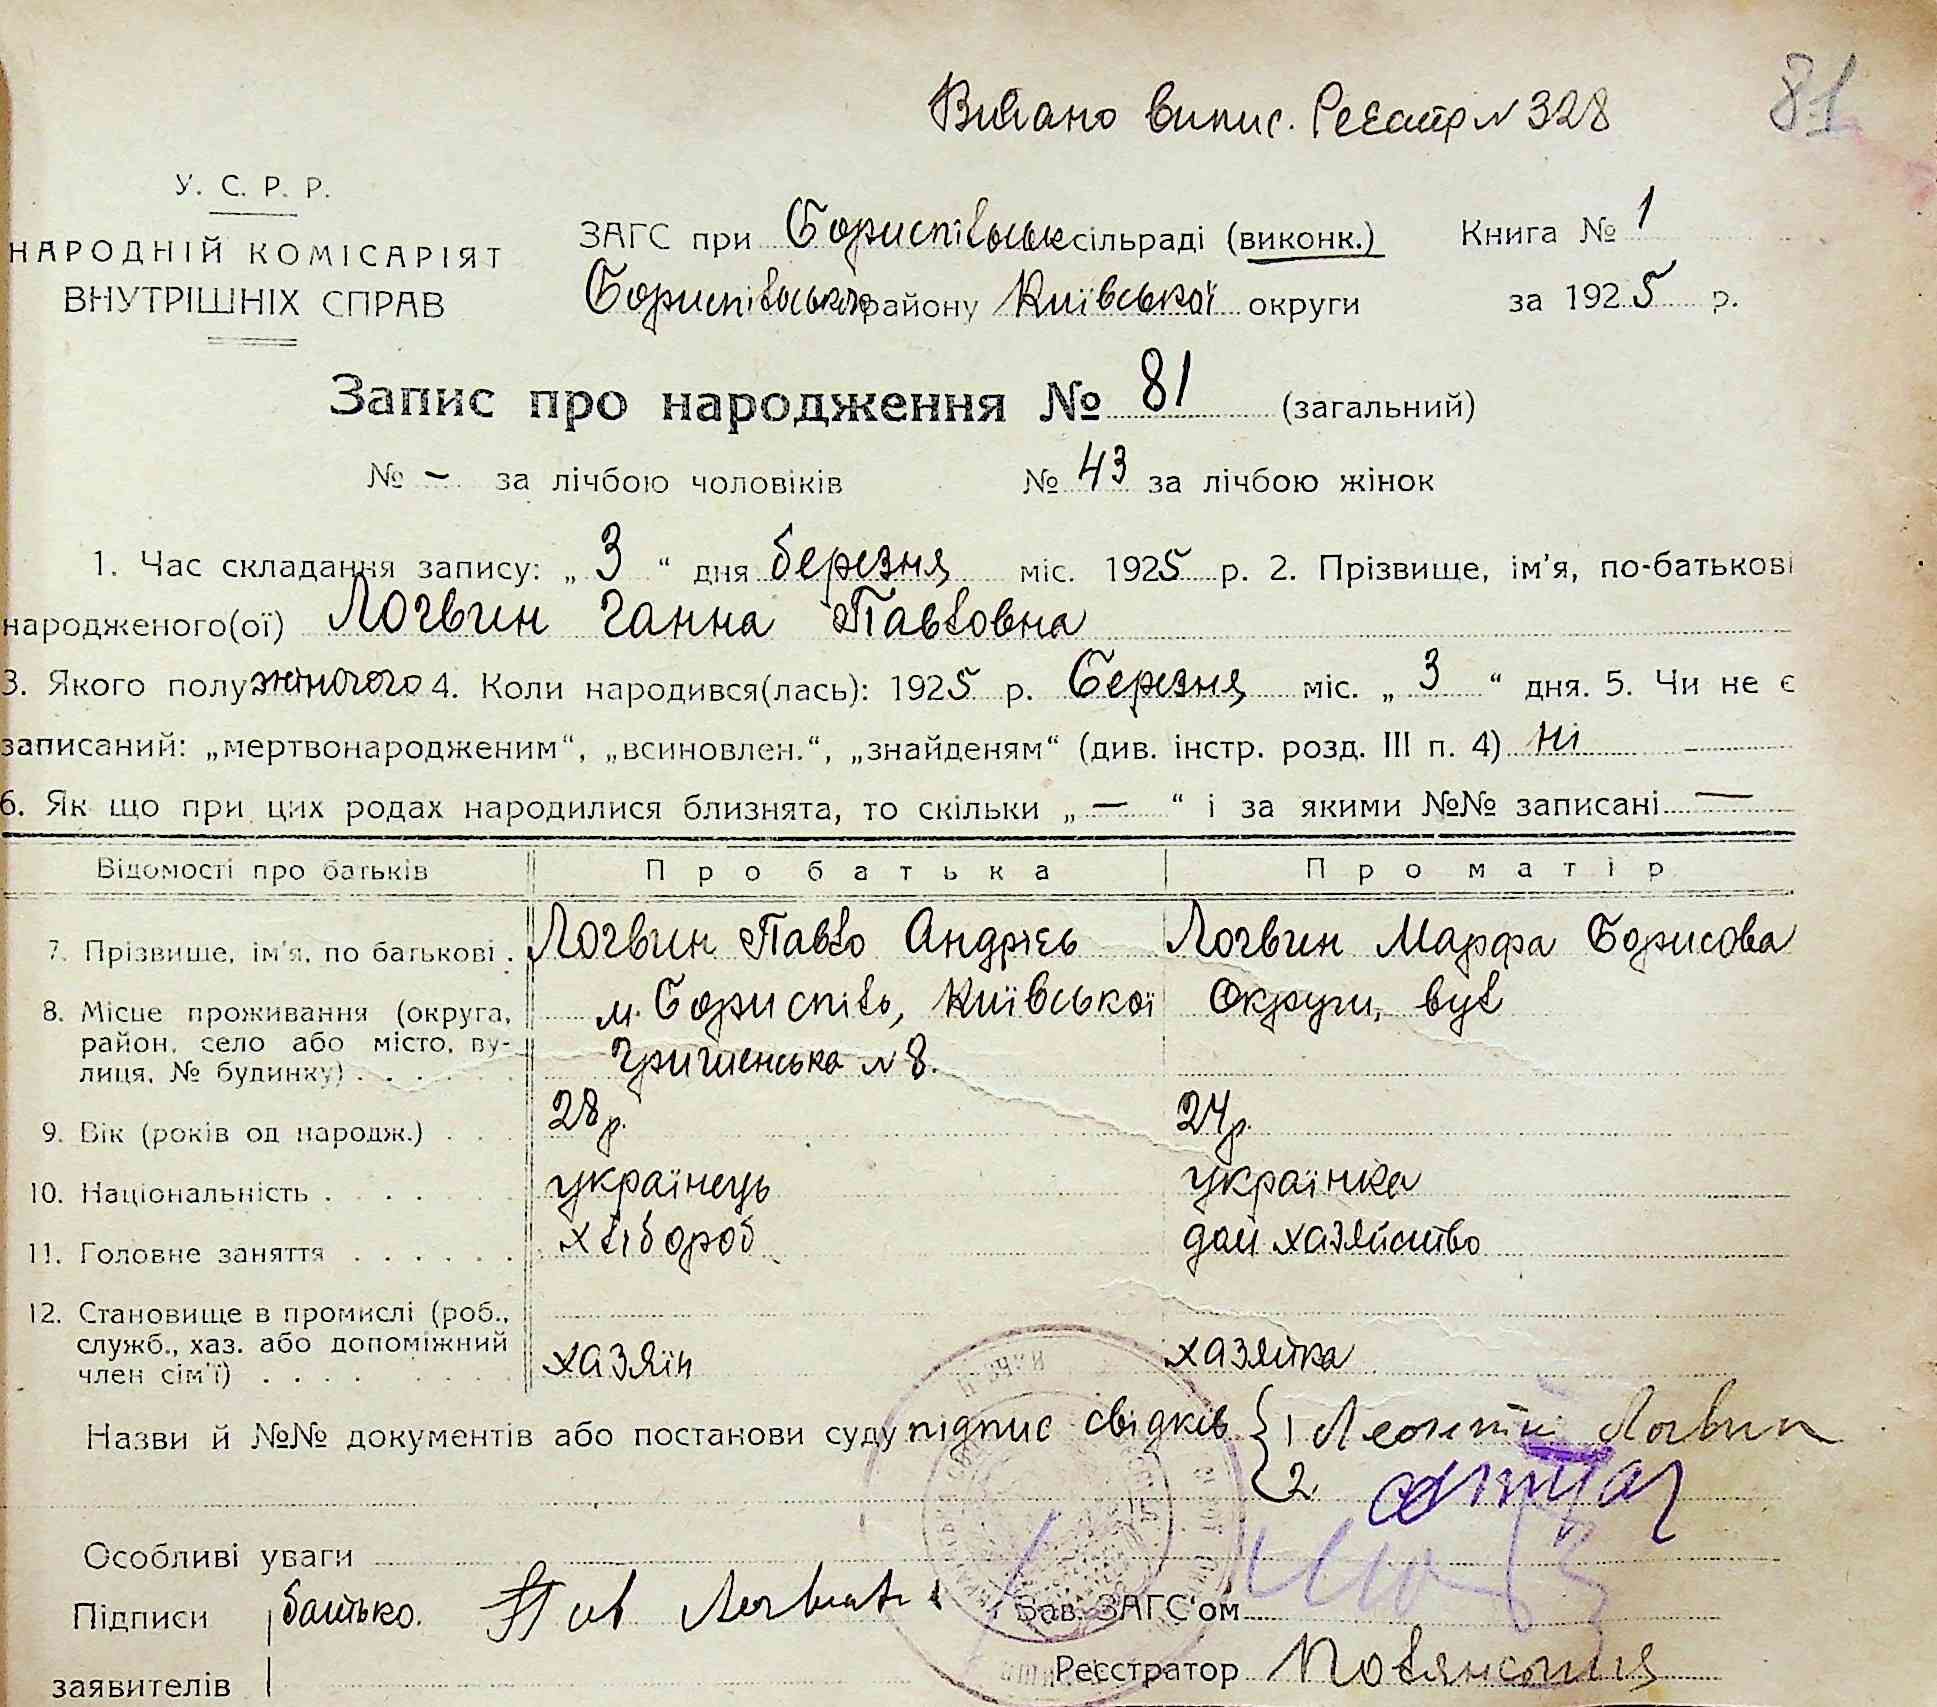 Видано випис. Реєстр № 328
81
У. С. Р. Р.
НАРОДНІЙ КОМІСАРІЯТ
ВНУТРІШНІХ СПРАВ
ЗАГС при Бориспільськ сільраді (виконк.) Книга № 1
Бориспільськ району Київської округи за 1925 р.
Запис про народження № 81 (загальний)
№ – за лічбою чоловіків № 43 за лічбою жінок
1. Час складання запису: „ 3 “ дня березня міс. 1925 р. 2. Прізвище, ім'я, по-батькові
народженого(ої) Логвин Ганна Павловна
3. Якого полу жіночого 4. Коли народився(лась): 1925 р. Березня міс. „ 3 “ дня. 5. Чи не є
записаний: „мертвонародженим“, „всиновлен.“, „знайденям“ (див. інстр. розд. III п. 4) ні –
6. Як що при цих родах народилися близнята, то скільки „ — “ і за якими №№ записані —
Відомості про батьків Про батька Про матір
7. Прізвище, ім'я, по батькові . Логвин Павло Андрієв Логвин Марфа Борисова
8. Місце проживання (округа, район, село або місто, ву-лиця, № будинку) . . . . . . м. Бориспіль, Київської Округи, вул
Гришенська № 8.
9. Вік (років од народж.) . . . 28 р. 24 р.
10. Національність . . . . . українець українка
11. Головне заняття . . . . . . хлібороб дом хазяйство
12. Становище в промислі (роб.,
служб., хаз. або допоміжний
член сім'ї) . . . . . . . . хазяїн хазяйка
Назви й №№ документів або постанови суду підпис свідків { 1 Леонтій Логвин
2
Особливі уваги
Підписи батько. Пав Логвин Зав. ЗАГС'ом
заявителів Реєстратор